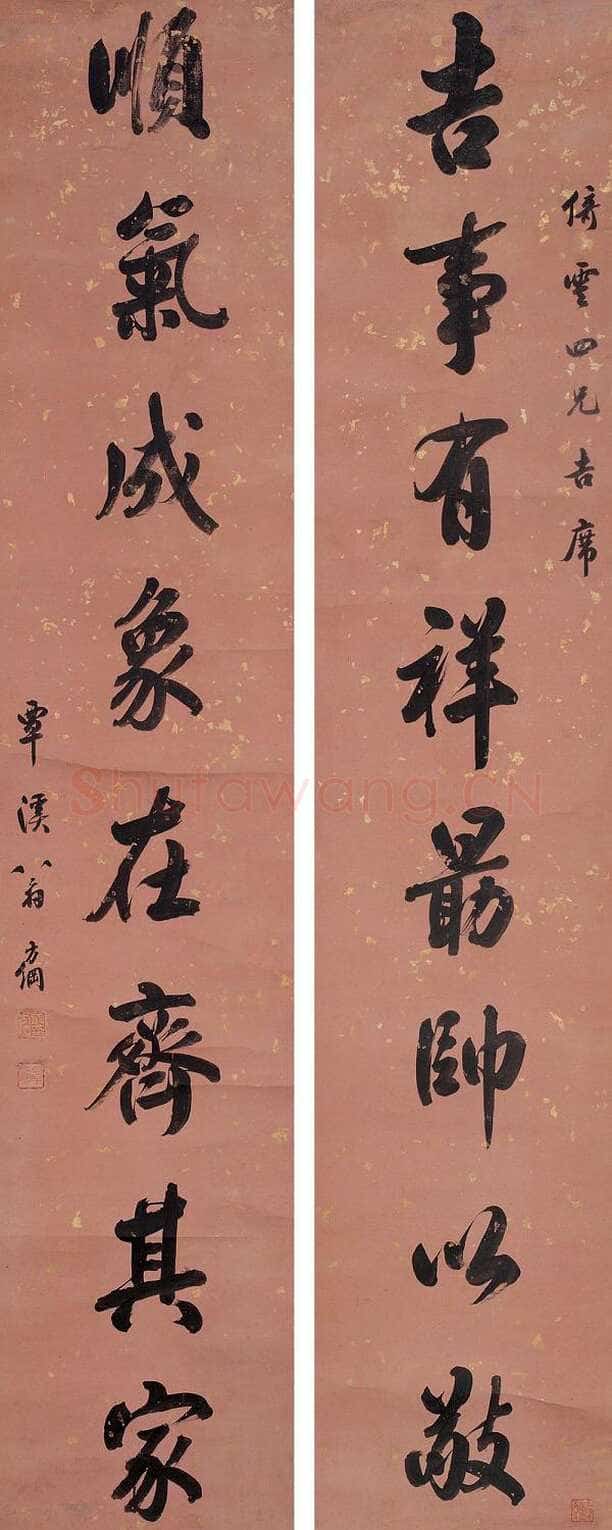 倚雲四兄吉席
吉事有祥勗帥以敬
順氣成象在齊其家
覃溪翁方綱
Shufawang.CN